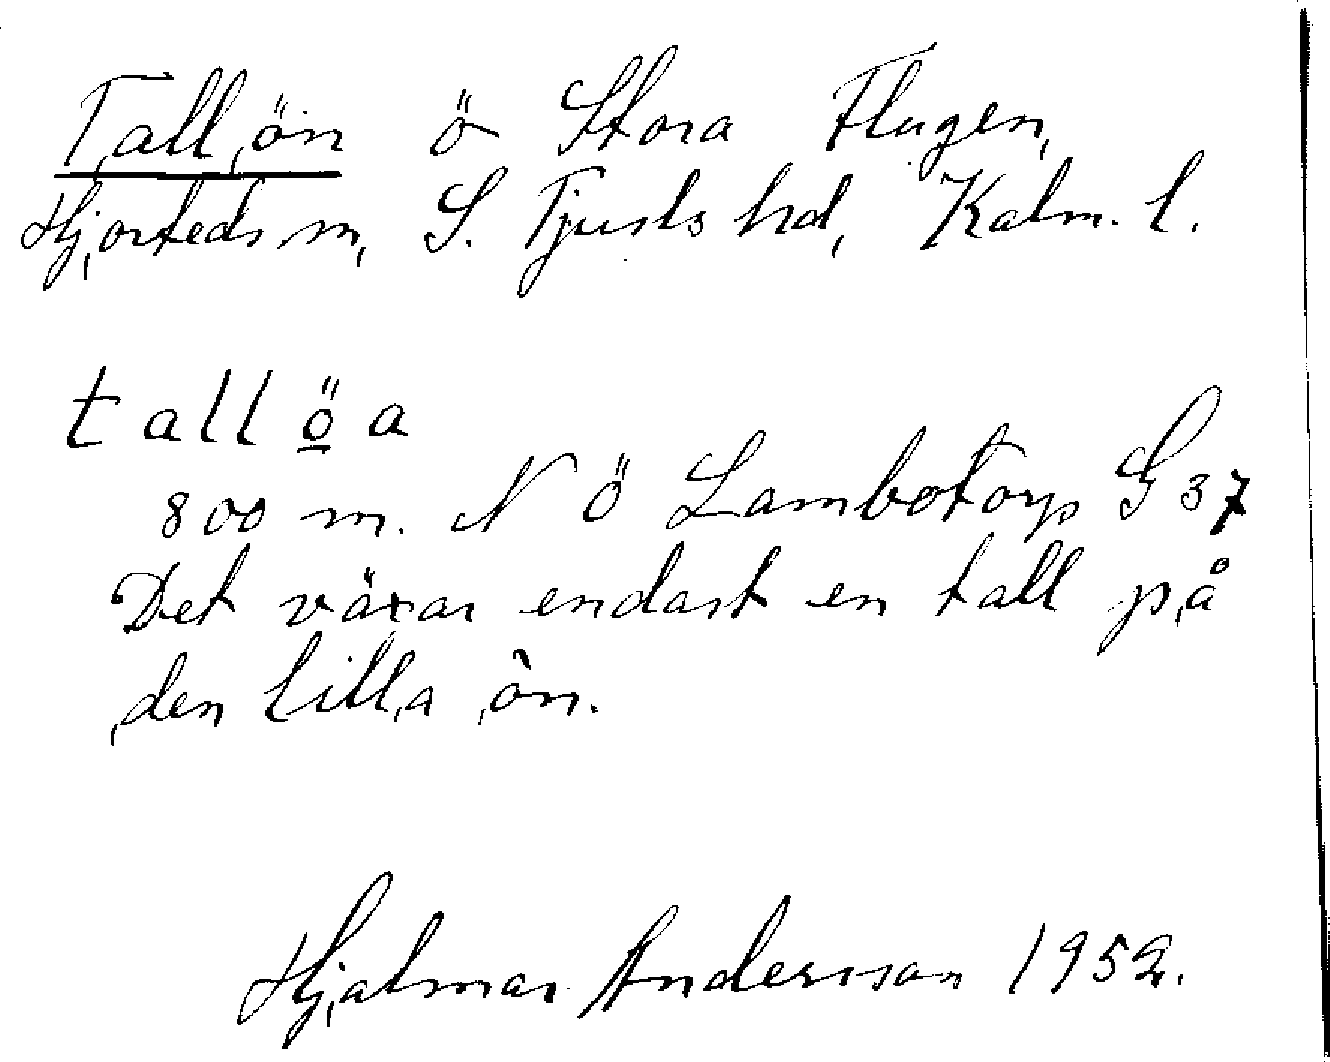 Tallön ö Stora Flugen,
Hjorteds sn, S. Tjusts hd, Kalm. l.
tallöa
800 m. N ö Lambotorp G 37
Det växer endast en tall på
den lilla ön.
Hjalmar Andersson 1952.